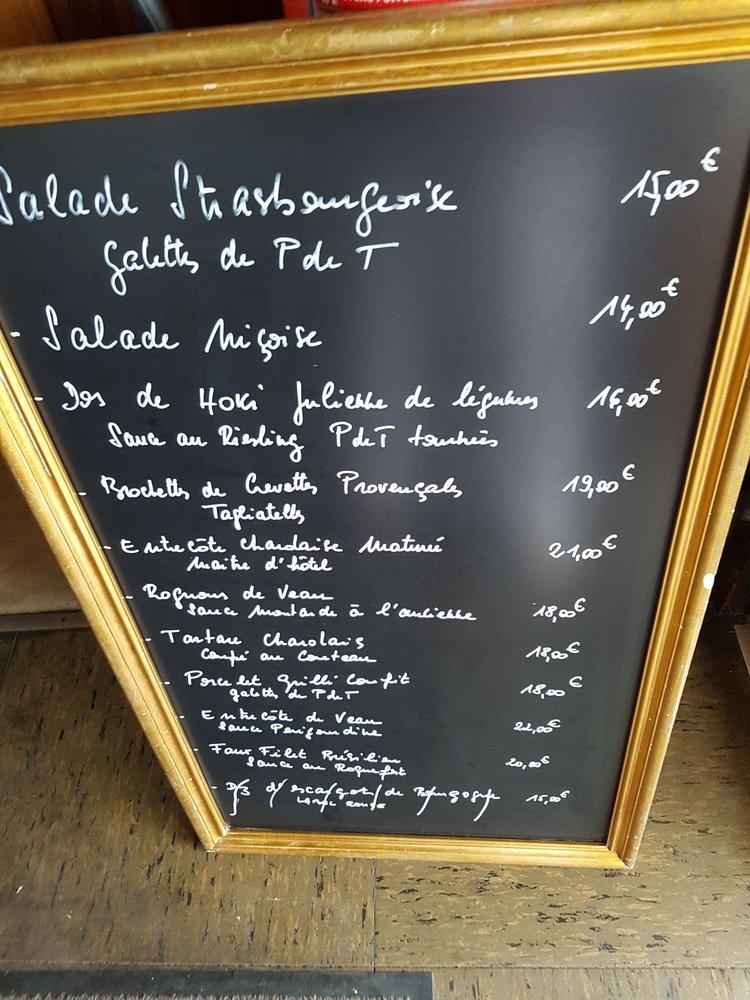 Salade Strasbourgeoise 15,00€
galettes de P de T
- Salade Niçoise 14,00€
- Dos de Hoki Julienne de légumes 16,00€
Sauce au Riesling PdeT tournées
- Brochettes de Crevettes Provençales 19,00€
Tagliatelles
- Entrecôte Charolaise Maturée 21,00€
Maitre d'hôtel
- Rognons de Veau
sauce moutarde à l'ancienne 18,00€
- Tartare Charolais
coupé au Couteau 18,00€
- Porcelet Grillé Confit
galette de PdeT 18,00€
- Entrecôte de Veau
sauce Perigourdine 22,00€
- Faux Filet Brésilien
sauce au Roquefort 20,00€
- Dz d'escargots de Bourgogne 15,00€
LABEL ROUGE